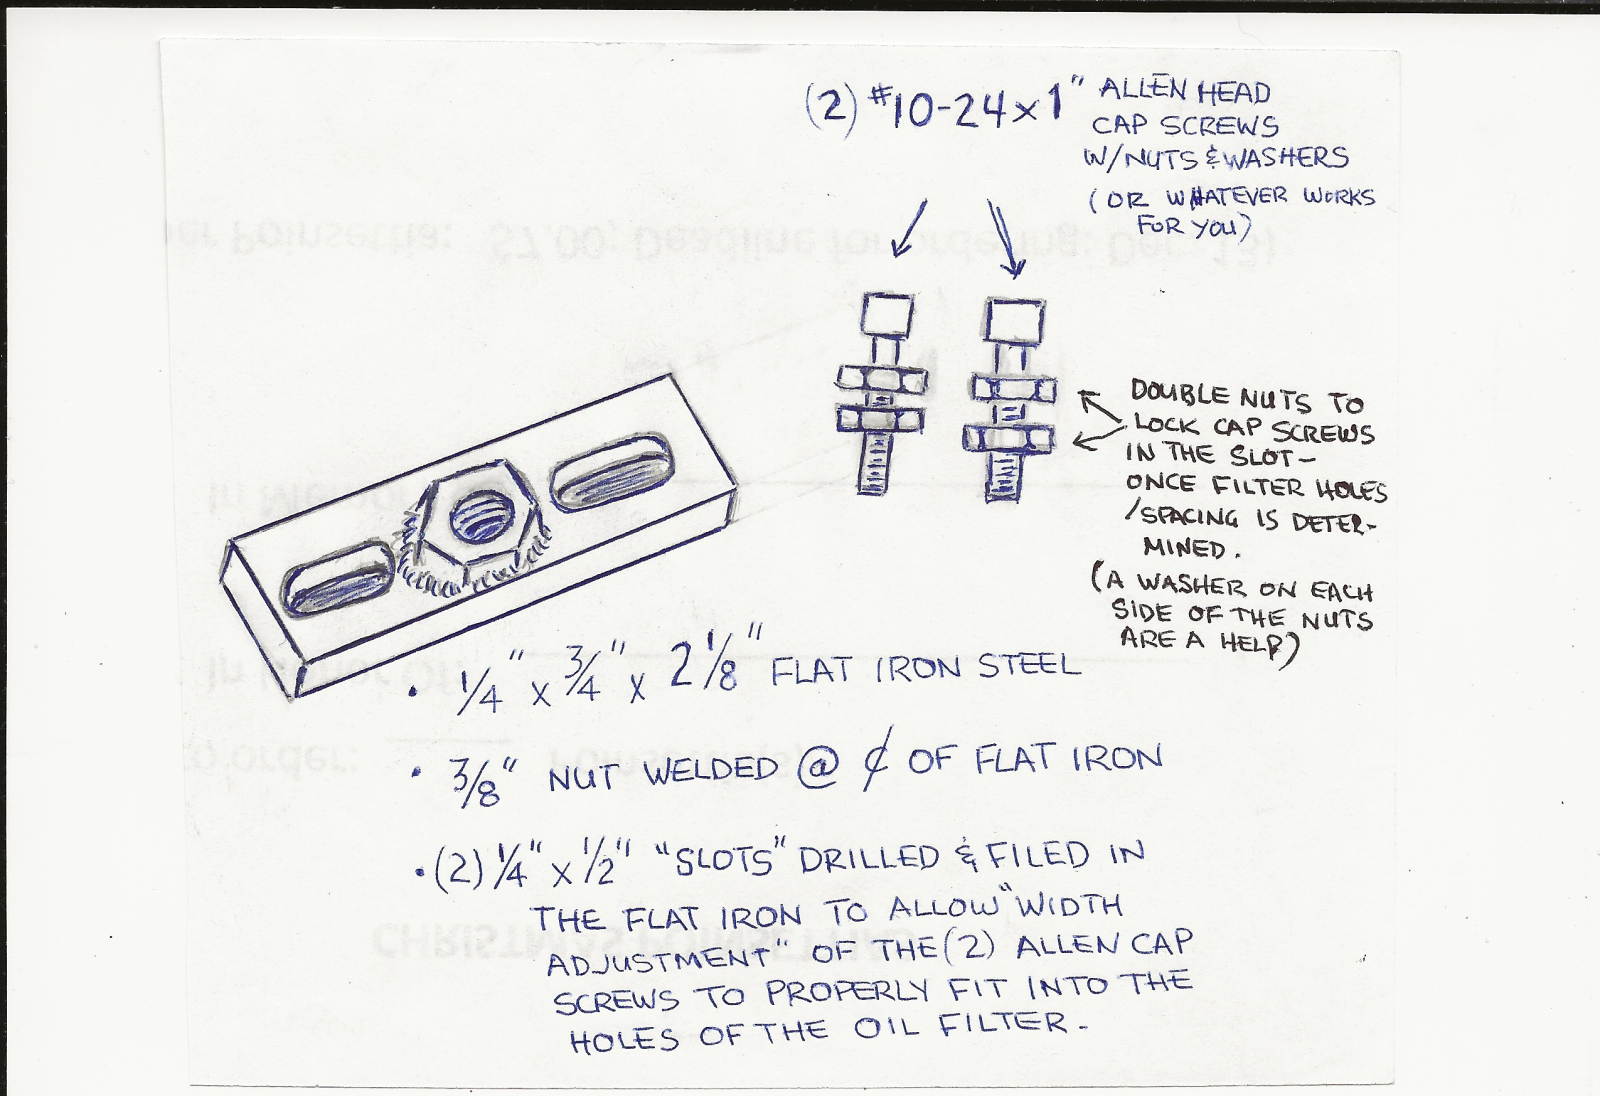 (2) #10-24x1" ALLEN HEAD
CAP SCREWS
W/NUTS & WASHERS
(OR WHATEVER WORKS
FOR YOU)
DOUBLE NUTS TO
LOCK CAP SCREWS
IN THE SLOT-
ONCE FILTER HOLES
/SPACING IS DETER-
MINED.
(A WASHER ON EACH
SIDE OF THE NUTS
ARE A HELP)
• 1/4" x 3/4" x 2 1/8" FLAT IRON STEEL
• 3/8" NUT WELDED @ ¢ OF FLAT IRON
• (2) 1/4" x 1/2" "SLOTS" DRILLED & FILED IN
THE FLAT IRON TO ALLOW "WIDTH
ADJUSTMENT" OF THE (2) ALLEN CAP
SCREWS TO PROPERLY FIT INTO THE
HOLES OF THE OIL FILTER.
per Poinsettia: $7.00; Deadline for ordering: Dec. 13)
CHRISTMAS POINSETTIAS